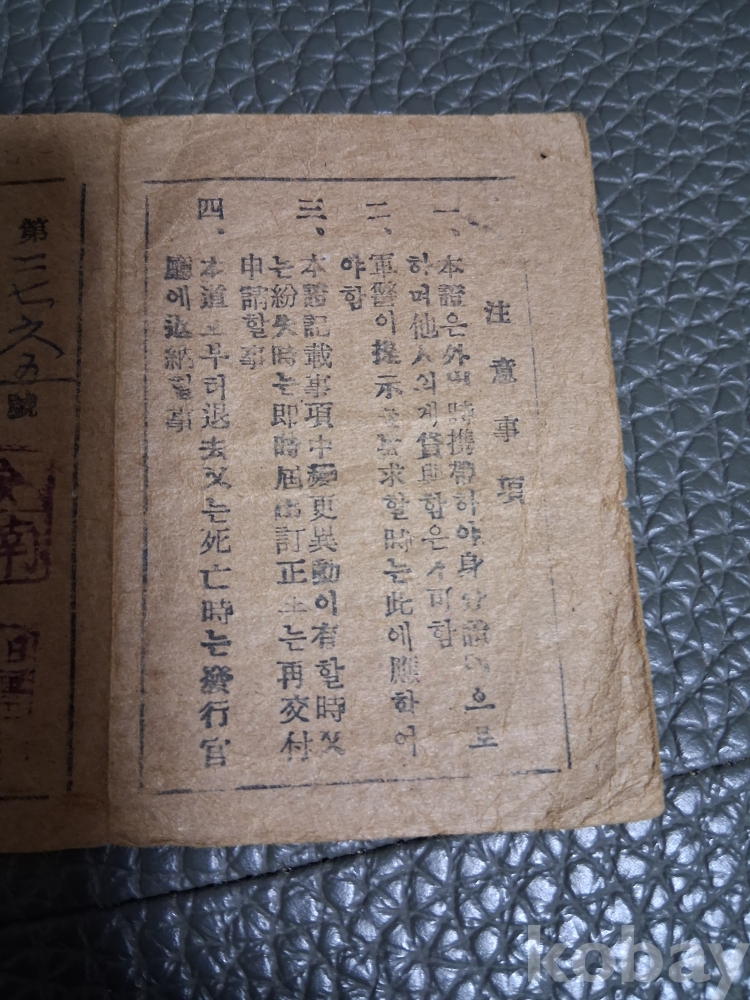 注意事項
一、本證은外出時携帶하야身分證明으로
하며他人의게貸與함은不可함
二、軍警이提示를要求할時는此에應하여
야함
三、本證記載事項中變更異動이有할時又
는紛失時는即時屆出訂正又는再交付
申請할事
四、本道로부터退去又는死亡時는發行官
廳에返納할事
第二七六五號
南
kobay